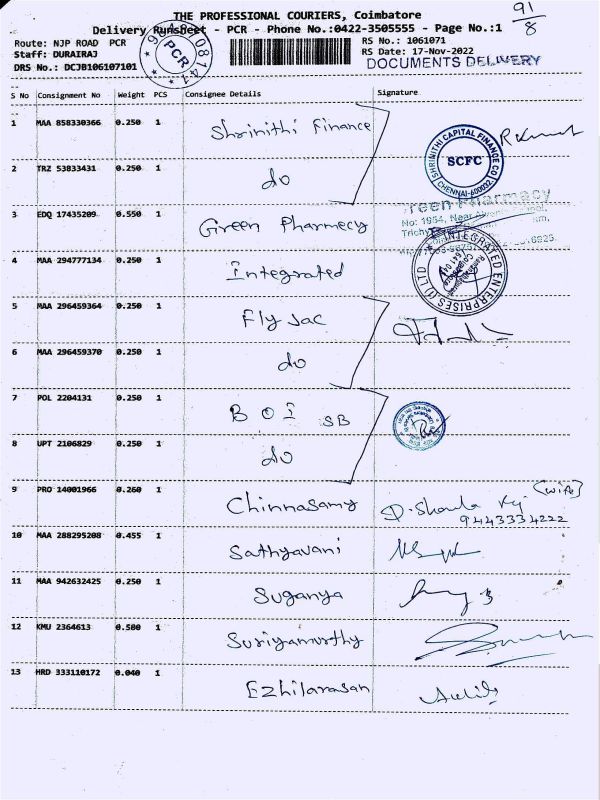 THE PROFESSIONAL COURIERS, Coimbatore
Delivery Runsheet - PCR - Phone No.:0422-3505555 - Page No.:1
91/8
Route: NJP ROAD PCR
RS No.: 1061071
Staff: DURAIRAJ
RS Date: 17-Nov-2022
DRS No.: DCJB106107101
DOCUMENTS DELIVERY
PCR
S No Consignment No Weight PCS Consignee Details Signature
1 MAA 858330366 0.250 1 Shrinithi Finance
SHRINITHI CAPITAL FINANCE CO
SCFC
CHENNAI-600032
2 TRZ 53833431 0.250 1 do
3 EDQ 17435209 0.550 1 Green Pharmecy
reen Pharmacy
No: 1954, Near
Trichy
4 MAA 294777134 0.250 1 Integrated
INTEGRATED ENTERPRISES (I) LTD
5 MAA 296459364 0.250 1 Fly Jac
6 MAA 296459370 0.250 1 do
7 POL 2204131 0.250 1 BOI SB
8 UPT 2106829 0.250 1 do
9 PRO 14001966 0.260 1 Chinnasamy
(wife)
9443334222
10 MAA 288295208 0.455 1 Sathyavani
11 MAA 942632425 0.250 1 Suganya
12 KMU 2364613 0.500 1 Suriyamurthy
13 HRD 333110172 0.040 1 Ezhilarasan